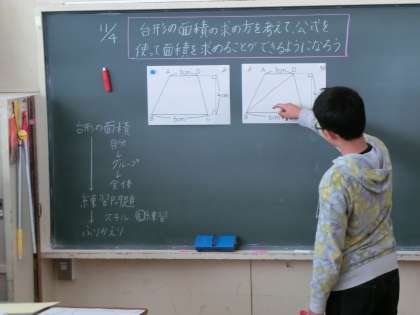 11/4
台形の面積の求め方を考えて、公式を
使って面積を求めることができるようになろう
A 3cm D
4cm
B 6cm C
A 3cm D
B 6cm
台形の面積
自分
グループ
全体
練習問題
スキル
練習
ふりかえり